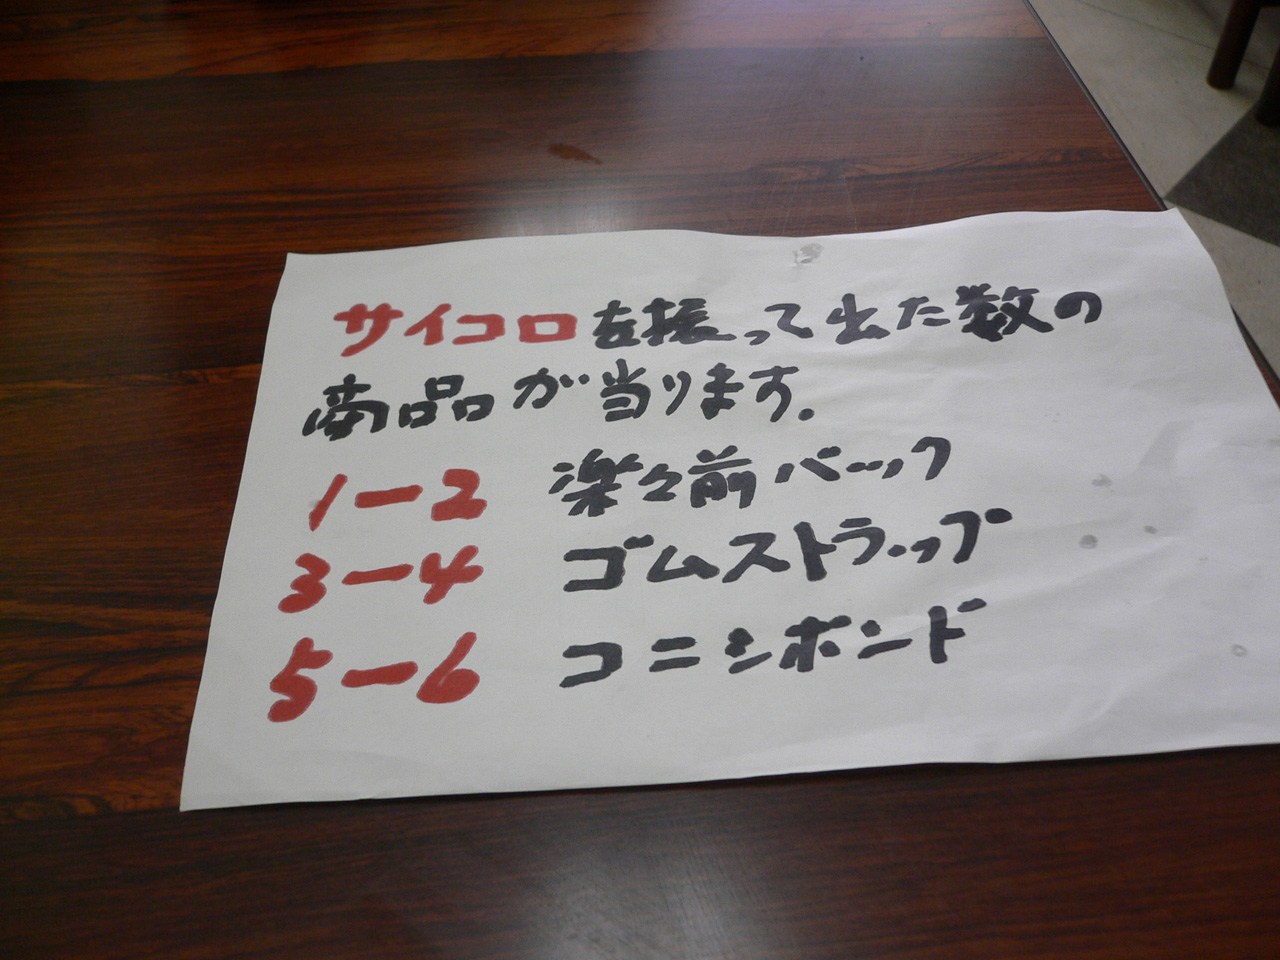 サイコロを振って出た数の
商品が当ります.
1ー2 楽々前バック
3ー4 ゴムストラップ
5ー6 コニシボンド